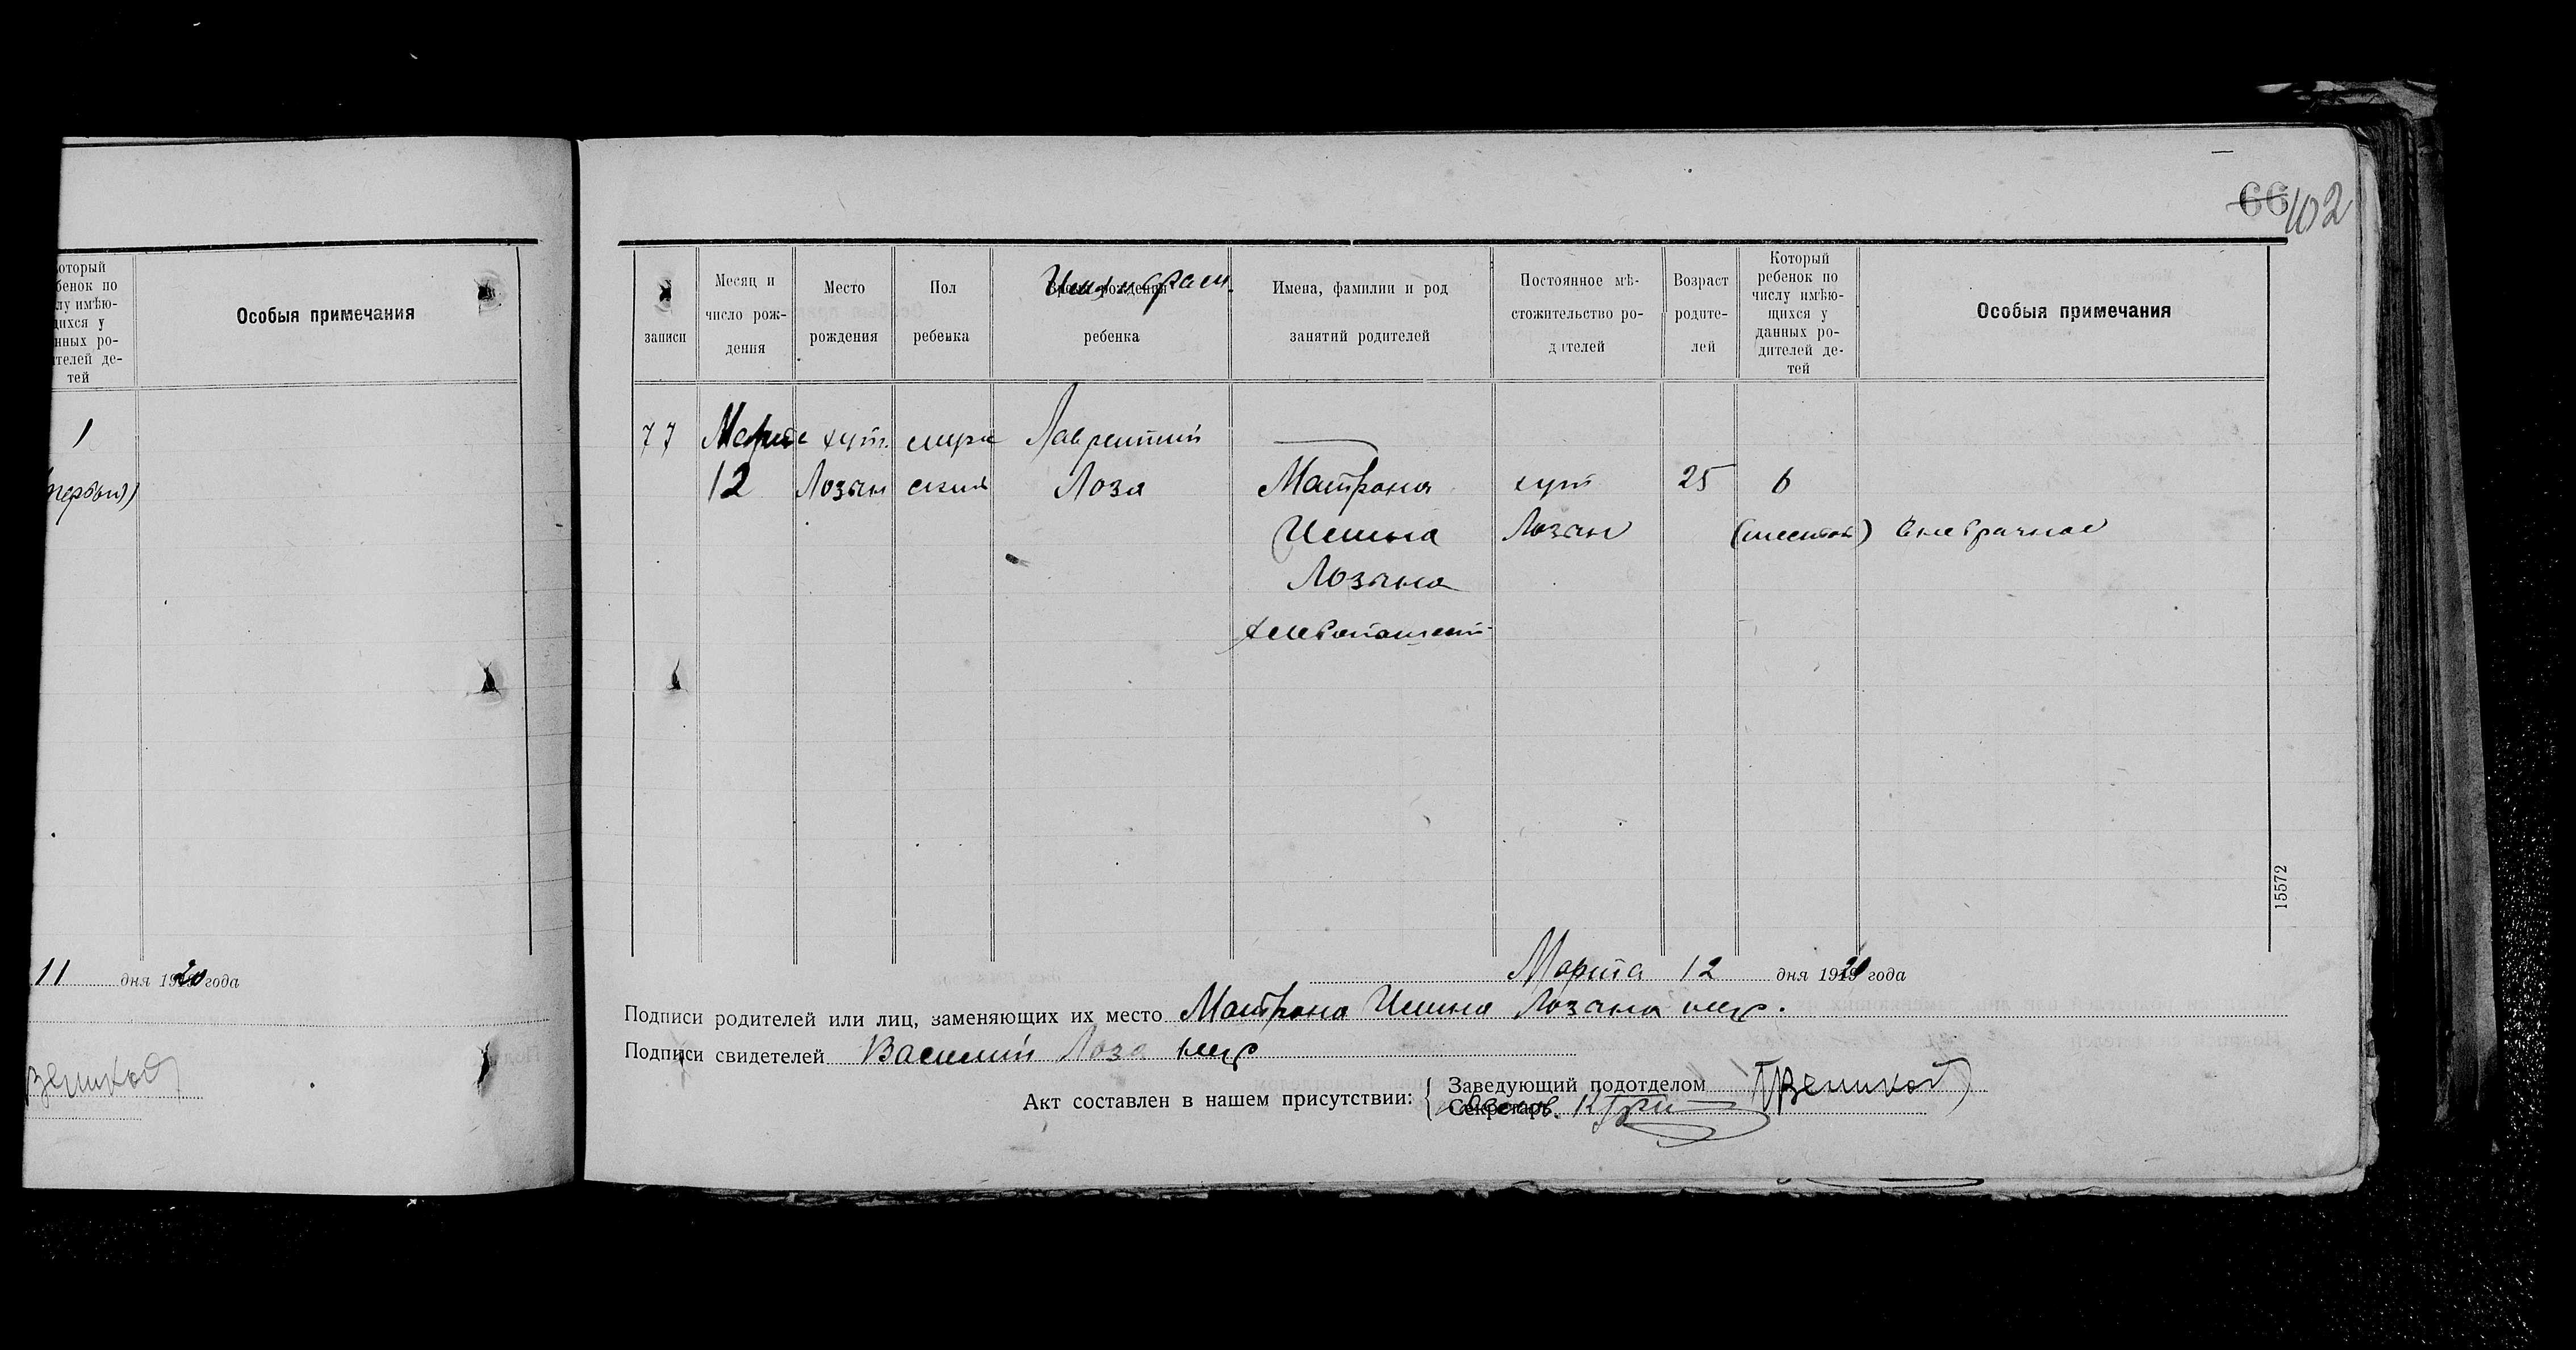 66 102
оторый
бенок по
лу имѣю-
щихся у
нных ро-
телей де-
тей
Особыя примечания
1
(первый)
11 дня 1920 года
записи
Месяц и
число рож-
дения
Место
рождения
Пол
ребенка
Имя и фам.
ребенка
Имена, фамилии и род
занятий родителей
Постоянное мѣ-
стожительство ро-
дителей
Возраст
родите-
лей
Который
ребенок по
числу имѣю-
щихся у
данных ро-
дителей де-
тей
Особыя примечания
77 Марта хут. муж Лаврентий
12 Лозын ский Лоза Матрона хут 25 6
Лозын (шестой) внебрачное
Лозына
хлебопашест
15572
Марта 12 дня 1920 года
Подписи родителей или лиц, заменяющих их место Матрона Лозына
Подписи свидетелей Василий Лоза
Акт составлен в нашем присутствии:
Заведующий подотделом
Секретарь